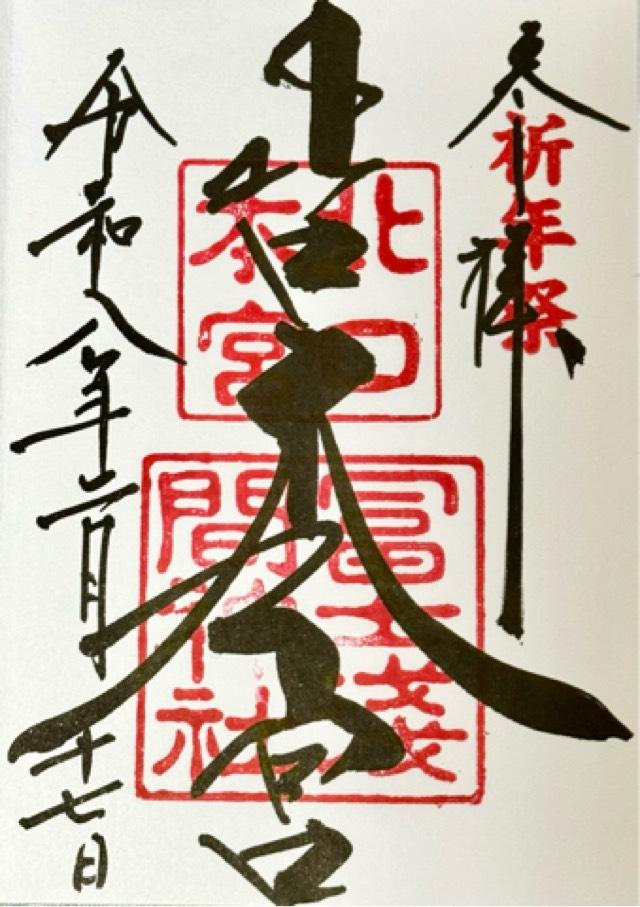 奉拝
祈年祭
北口本宮
北口
本宮
冨士淺
間神社
令和八年二月十七日